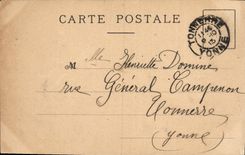 CARTE POSTALE
TONNERRE
YONNE
M lle Henriette Domine
rue Général Campenon
Tonnerre
(Yonne)